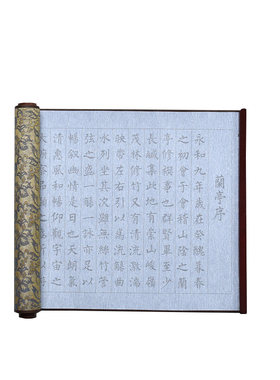 蘭亭序
永和九年歲在癸醜暮春
之初會于會稽山陰之蘭
亭修禊事也群賢畢至少
長鹹集此地有崇山峻嶺
茂林修竹又有清流激湍
映帶左右引以爲流觴曲
水列坐其次雖無絲竹管
弦之盛一觴一詠亦足以
暢叙幽情是日也天朗氣
清惠風和暢仰觀宇宙之